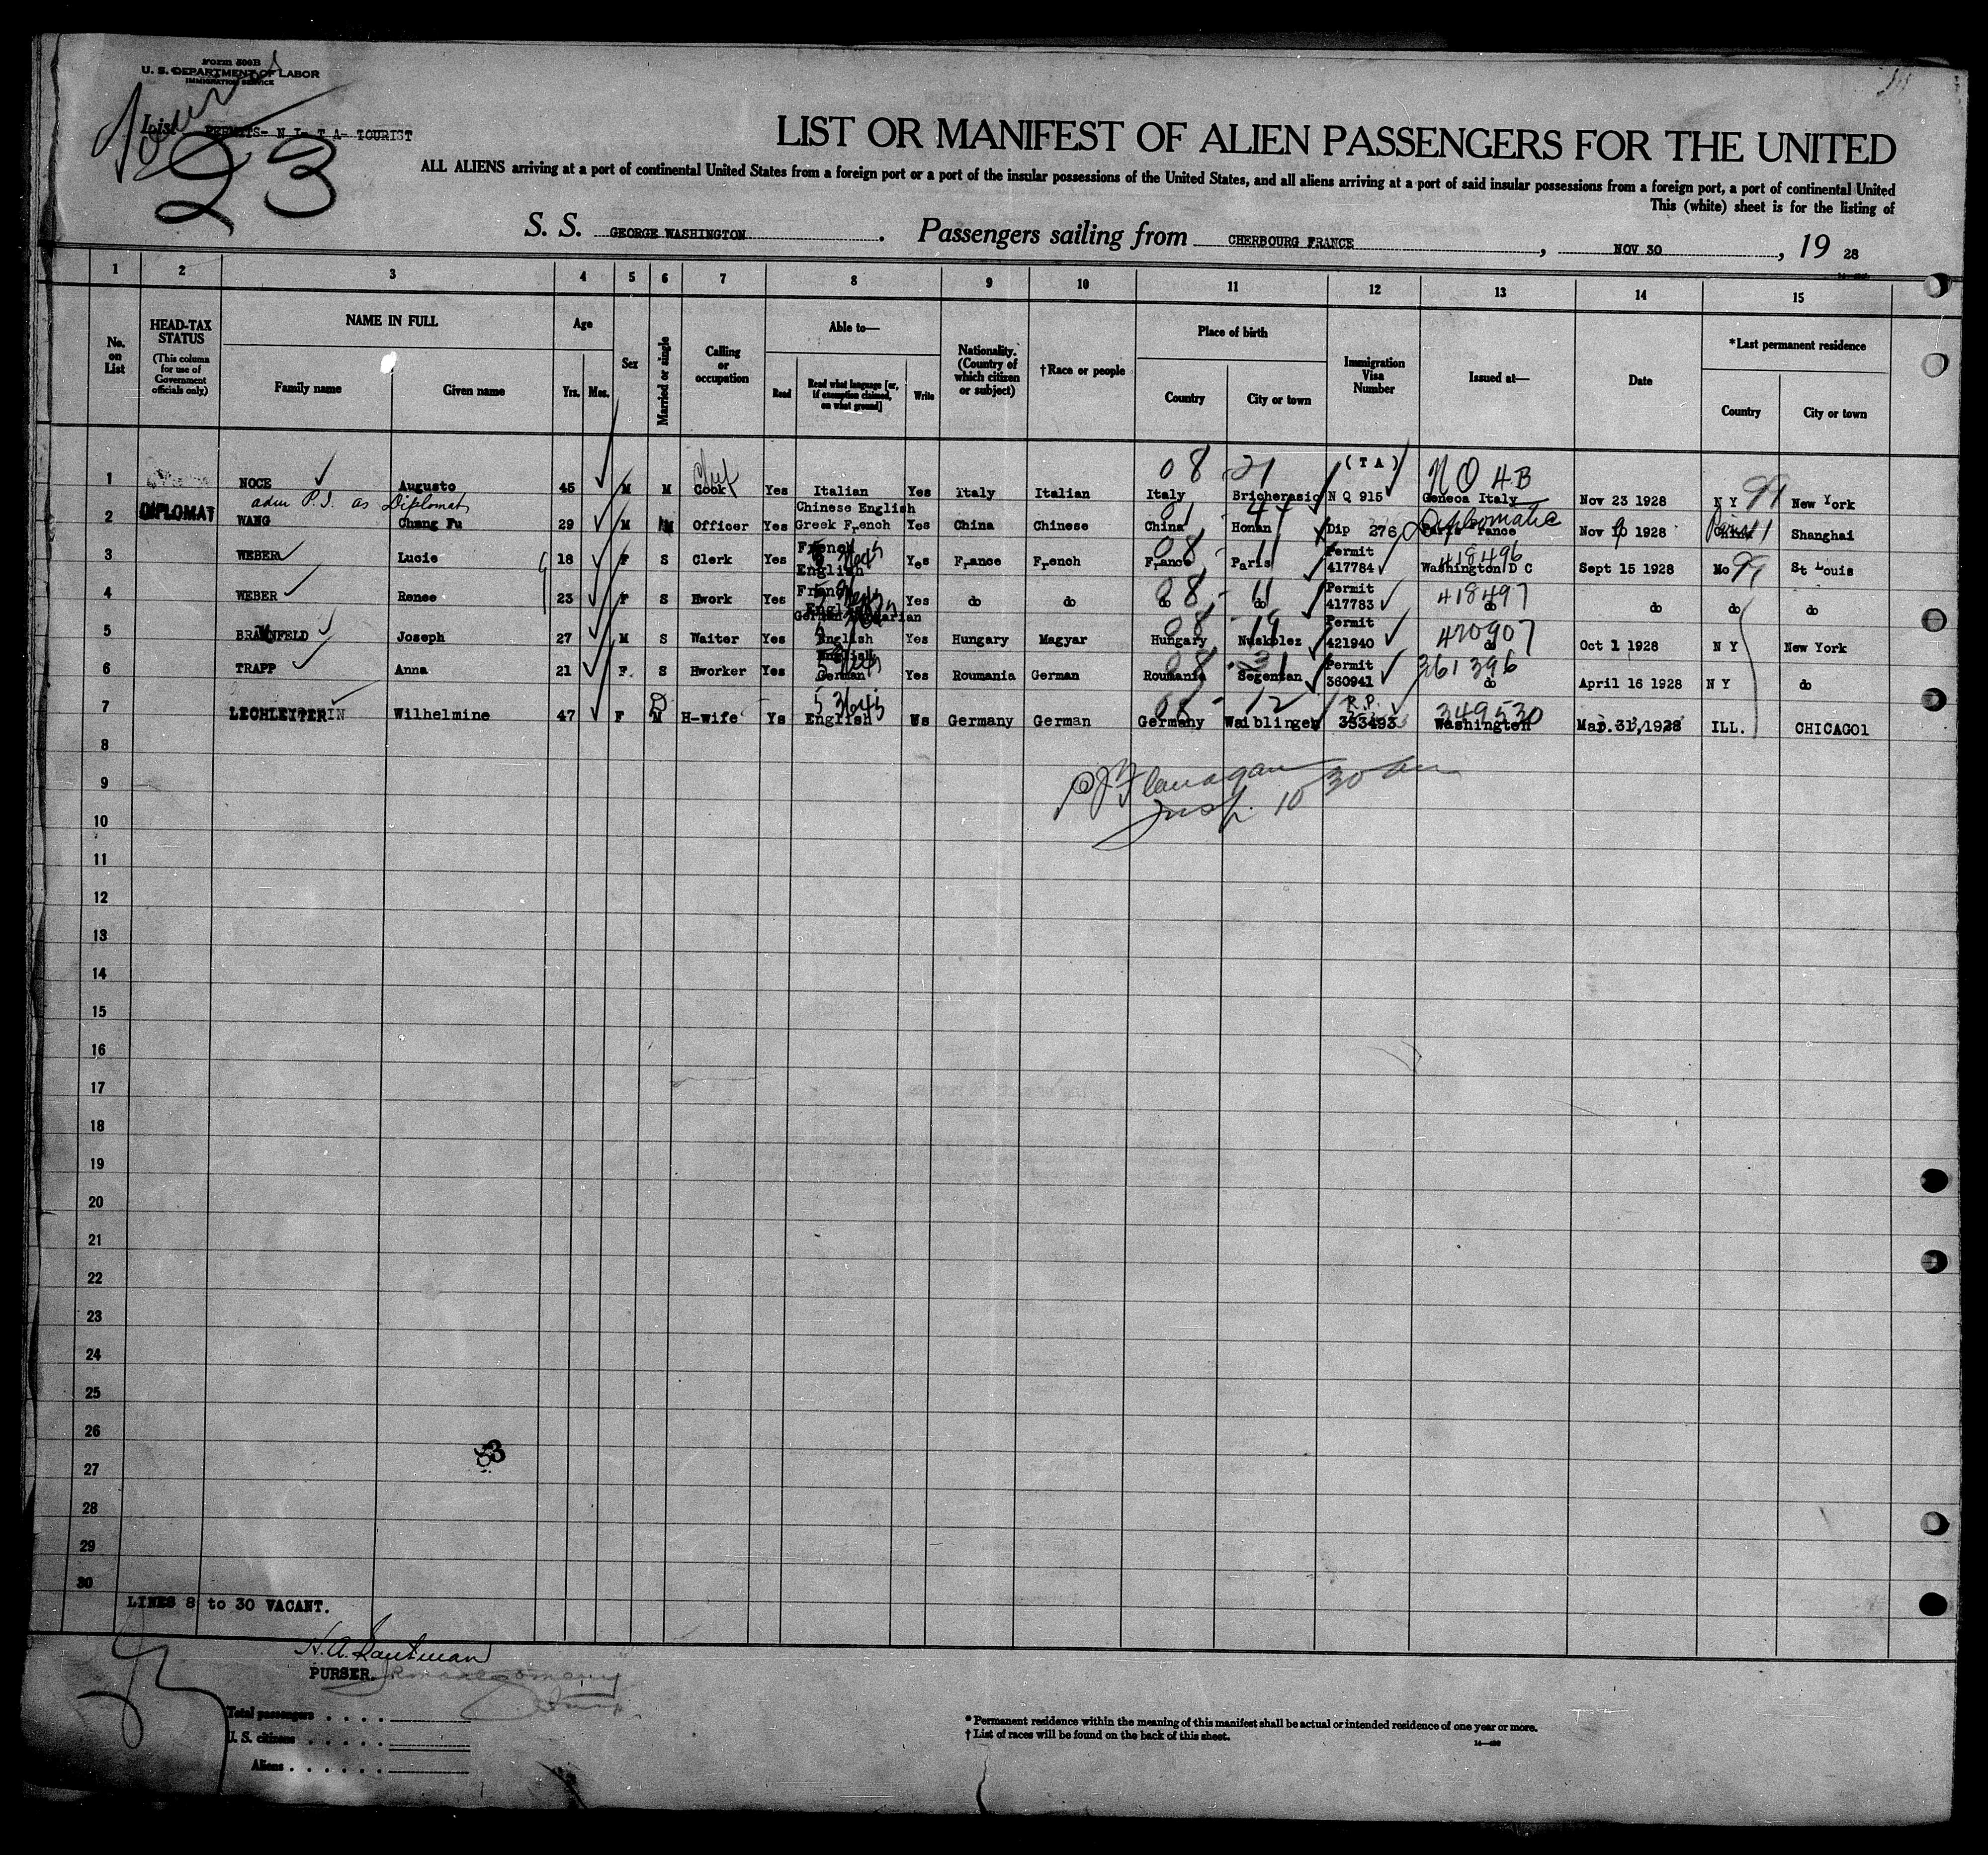 Form 500B
U. S. DEPARTMENT OF LABOR
IMMIGRATION SERVICE
List
PERMITS- N I- T A- TOURIST
23
LIST OR MANIFEST OF ALIEN PASSENGERS FOR THE UNITED
ALL ALIENS arriving at a port of continental United States from a foreign port or a port of the insular possessions of the United States, and all aliens arriving at a port of said insular possessions from a foreign port, a port of continental United
This (white) sheet is for the listing of
S. S. GEORGE WASHINGTON . Passengers sailing from CHERBOURG FRANCE , NOV 30 , 19 28
1 2 3 4 5 6 7 8 9 10 11 12 13 14 15
No. on List
HEAD-TAX STATUS (This column for use of Government officials only)
NAME IN FULL
Family name Given name
Age
Yrs. Mos.
Sex
Married or single
Calling or occupation
Able to—
Read Read what language [or, if exemption claimed, on what ground] Write
Nationality. (Country of which citizen or subject)
†Race or people
Place of birth
Country City or town
Immigration Visa Number
Issued at—
Date
*Last permanent residence
Country City or town
08 21 (TA) NO HB
1 NOCE Augusto 45 M M Cook Yes Italian Yes Italy Italian Italy Bricherasio N Q 915 Genoca Italy Nov 23 1928 N Y 99 New York
adm P.I. as Diplomat
2 DIPLOMAT WANG Chang Fu 29 M M Officer Yes Chinese English Greek French Yes China Chinese China Honan Dip 276 Diplomatic Nov 10 1928 Shanghai
3 WEBER Lucie 18 F S Clerk Yes French English Yes France French France 08 - 11 Paris Permit 417784 418496 Washington D C Sept 15 1928 Mo 99 St Louis
4 WEBER Renee 23 F S Hwork Yes French English Yes do do do 08 - 11 do Permit 417783 418497 do do do do
5 BRAUNFELD Joseph 27 M S Waiter Yes German Hungarian English Yes Hungary Magyar Hungary 08 - 19 Nuskolez Permit 421940 420907 do Oct 1 1928 N Y New York
6 TRAPP Anna 21 F. S Hworker Yes English German Yes Roumania German Roumania 08 - 31 Segentan Permit 360941 361396 do April 16 1928 N Y do
7 LECHLEITERIN Wilhelmine 47 F D M H-wife Ys English Ws Germany German Germany 08 - 12 Waiblingen R.P. 353493 349530 Washington Mar. 31, 1928 ILL. CHICAGO1
8
9
Flanagan
Insp. 10 30 am
10
11
12
13
14
15
16
17
18
19
20
21
22
23
24
25
26
53
27
28
29
30
LINES 8 to 30 VACANT.
PURSER.
Total passengers . . . .
U. S. citizens . . . . .
Aliens . . . . . .
* Permanent residence within the meaning of this manifest shall be actual or intended residence of one year or more.
† List of races will be found on the back of this sheet.